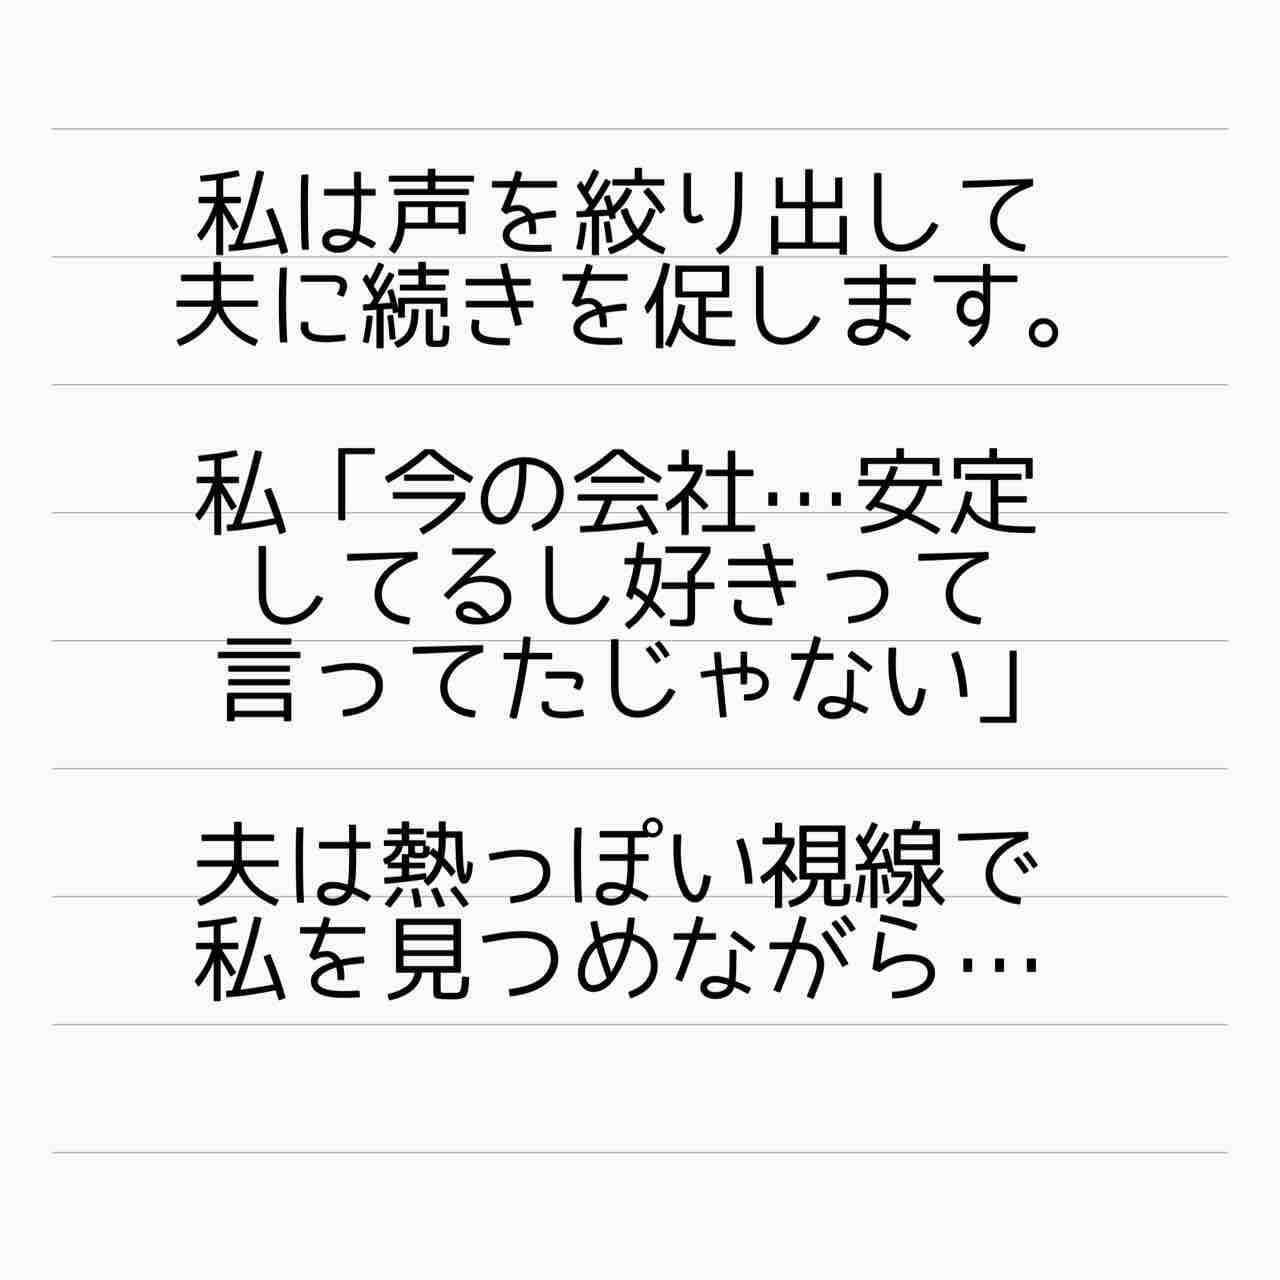 私は声を絞り出して
夫に続きを促します。
私「今の会社…安定
してるし好きって
言ってたじゃない」
夫は熱っぽい視線で
私を見つめながら…